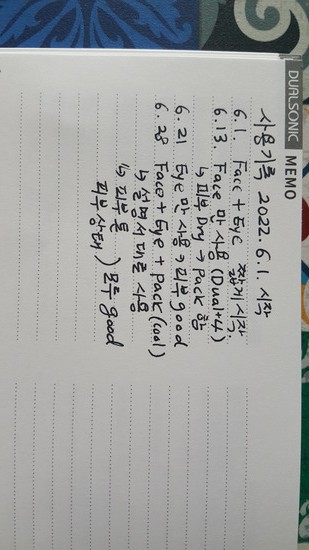 DUALSONIC MEMO
사용기록 2022. 6. 1. 시작
6. 1. Face + Eye 짧게 시작.
6. 13. Face 만 사용 (Dual+4)
↳ 피부 Dry → Pack 함
6. 21 Eye 만 사용 → 피부 good
6. 28 Face + Eye + Pack (cool)
↳ 설명서대로 사용
↳ 피부톤
피부상태 ) 모두 good